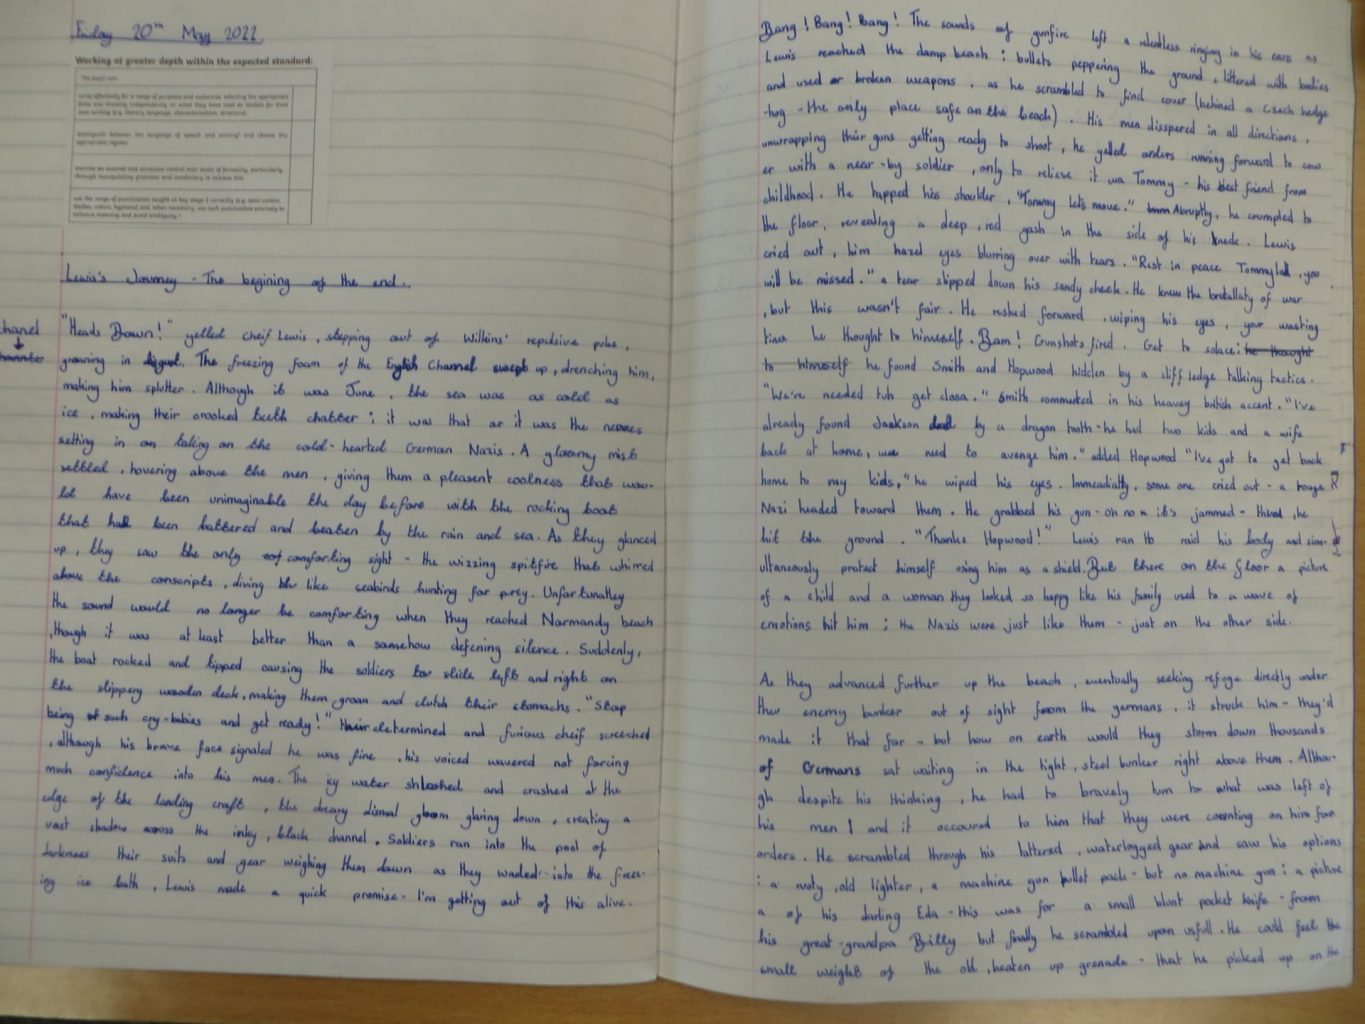 Friday 20th May 2022
Working at greater depth within the expected standard:
The pupil can:
write effectively for a range of purposes and audiences, selecting the appropriate
form and drawing independently on what they have read as models for their
own writing (e.g. literary language, characterisation, structure)
distinguish between the language of speech and writing and choose the
appropriate register
exercise an assured and conscious control over levels of formality, particularly
through manipulating grammar and vocabulary to achieve this
use the range of punctuation taught at key stage 2 correctly (e.g. semi-colons,
dashes, colons, hyphens) and, when necessary, use such punctuation precisely to
enhance meaning and avoid ambiguity.
Lewis's Journey - The begining of the end..
"Heads Down!" yelled cheif Lewis, stepping out of Wilkins' repulsive puke,
groaning in. The freezing foam of the English Channel swept up, drenching him,
making him splutter. Although it was June, the sea was as cold as
ice, making their crooked teeth chatter; it was that or it was the nerves
setting in on taking on the cold-hearted German Nazis. A gloomy mist
settled, hovering above the men, giving them a pleasent coolness that wou-
ld have been unimaginable the day before with the rocking boat
that had been battered and beaten by the rain and sea. As they glanced
up, they saw the only comforting sight - the wizzing spitfire that whirred
above the conscripts, diving like seabirds hunting for prey. Unfortunatley
the sound would no longer be comforting when they reached Normandy beach
, though it was at least better than a somehow defening silence. Suddenly,
the boat rocked and tipped causing the soldiers to slide left and right on
the slippery wooden deck, making them groan and clutch their stomachs. "Stop
being such cry-babies and get ready!" determined and furious cheif screeched
, although his brave face signaled he was fine, his voiced wavered not forcing
much confidence into his men. The icy water shloshed and crashed at the
edge of the landing craft, the dreary dismal gloom glaring down, creating a
vast shadow across the inky, black channel. Soldiers ran into the pool of
darkness their suits and gear weighing them down as they waded into the freez-
ing ice bath, Lewis made a quick promise - I'm getting out of this alive.
Bang! Bang! Bang! The sounds of gunfire left a relentless ringing in his ears as
Lewis reached the damp beach; bullets peppering the ground, littered with bodies
and used or broken weapons, as he scrambled to find cover (behind a Czech hedge
-hog - the only place safe on the beach). His men disspered in all directions,
unwrapping their guns getting ready to shoot, he yelled orders running forward to cow
er with a near-by soldier, only to relieve it wa Tommy - his best friend from
childhood. He tapped his shoulder, "Tommy let's move." Abruptly, he crumpled to
the floor, revealing a deep, red gash in the side of his kneck. Lewis
cried out, him hazel eyes blurring over with tears. "Rest in peace Tommy lad, you
will be missed." a tear slipped down his sandy cheek. He knew the brutallaty of war
, but this wasn't fair. He rushed forward, wiping his eyes, your wasting
time he thought to himself. Bam! Gunshots fired. Get to solace: he thought
to himself he found Smith and Hopwood hidden by a cliff ledge talking tactics.
"We're needed tuh get closa." Smith commented in his heavey british accent. "I've
already found Jackson dead by a dragon tooth - he had two kids and a wife
back at home, we need to avenge him." added Hopwood "I've got to get back
home to my kids," he wiped his eyes. Immeadiatly, some one cried out - a rouge
Nazi headed toward them. He grabbed his gun - oh no it's jammed - thud, he
hit the ground. "Thanks Hopwood!" Lewis ran to raid his body and sim-
ultaneously protect himself using him as a shield. But there on the floor a picture
of a child and a woman they looked so happy like his family used to a wave of
emotions hit him; the Nazis were just like them - just on the other side.
As they advanced further up the beach, eventually seeking refuge directly under
the enemy bunker out of sight from the germans, it struck him - they'd
made it that far - but how on earth would they storm down thousands
of Germans sat waiting in the tight, steel bunker right above them. Althou-
gh despite his thinking, he had to bravely turn to what was left of
his men and it occoured to him that they were counting on him for
orders. He scrambled through his tattered, waterlogged gear and saw his options
: a rusty, old lighter, a machine gun bullet pack - but no machine gun: a picture
a of his darling Eda - this was for a small blunt pocket knife - from
his great-grandpa Billy but finally he scrambled upon usfull. He could feel the
small weight of the old, beaten up grenade - that he picked up on the